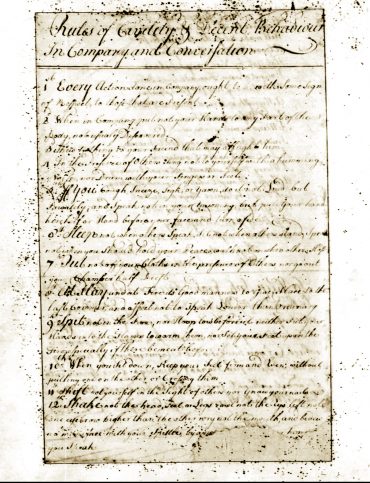 Rules of Civility & Decent Behaviour
In Company and Conversation
1 Every Action done in Company ought to with Some Sign
of Respect, to those that are Present
2 When in Company put not your Hands to any Part of the
Body, not usually Discovered
Shew Nothing to your Friend that may affright him
4 In the Presence of Others Sing not to yourself with a humming
nor Drum with your Fingers or Feet
5 If You Cough Sneeze Sigh or Yawn do it not Loud but
Privately and Speak not in your Yawning but put Your hand
before your face and turn aside
6 Sleep not when others Speak, Sit not when others stand, Speak
not when you Should hold your Peace, walk not when others
7 Put not off your Cloths in the presence of Others, nor go out
your Chamber half Drest
8 At Play and at Fire its Good manners to give Place to the
last Commer, and affect not to Speak Louder than Ordinary
9 Spit not in the Fire, nor Stoop low before it neither Put your
Hands into the Flames to warm them, nor Set your Feet upon the
Fire
10 When you Sit down, Keep your Feet firm and Even, without
putting one on the other or Crossing them
11 Shift not yourself in the Sight of others nor Gnaw your nails
12 Shake not the head, Feet or Legs rowl not the Eyes lift not
one eyebrow higher than the other wry not the mouth and bedew
no mans face with your Spittle by